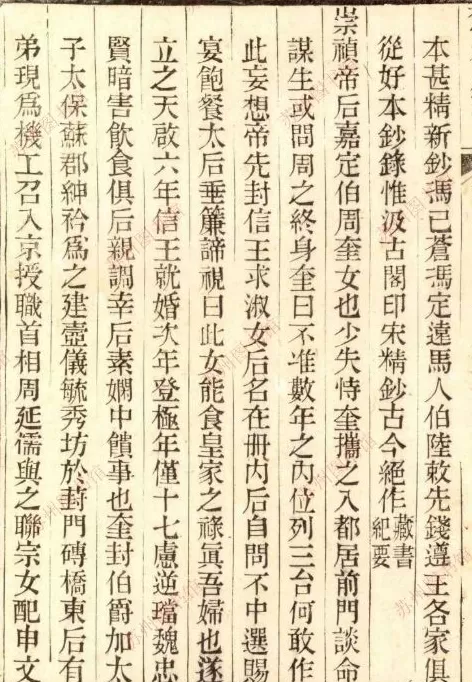 本甚精新鈔馮已蒼馮定遠馬人伯陸敕先錢遵王各家俱
從好本鈔錄惟汲古閣印宋精鈔古今絕作藏書紀要
崇禎帝后嘉定伯周奎女也少失恃奎攜之入都居前門談命
謀生或問周之終身奎曰不准數年之內位列三台何敢作
此妄想帝先封信王求淑女后名在冊內后自問不中選賜
宴飽餐太后垂簾諦視曰此女能食皇家之祿眞吾婦也遂
立之天啟六年信王就婚次年登極年僅十七慮逆璫魏忠
賢暗害飮食俱后親調幸后素嫻中饋事也奎封伯爵加太
子太保蘇郡紳衿爲之建壼儀毓秀坊於葑門磚橋東后有
弟現爲機工召入京授職首相周延儒與之聯宗女配申文